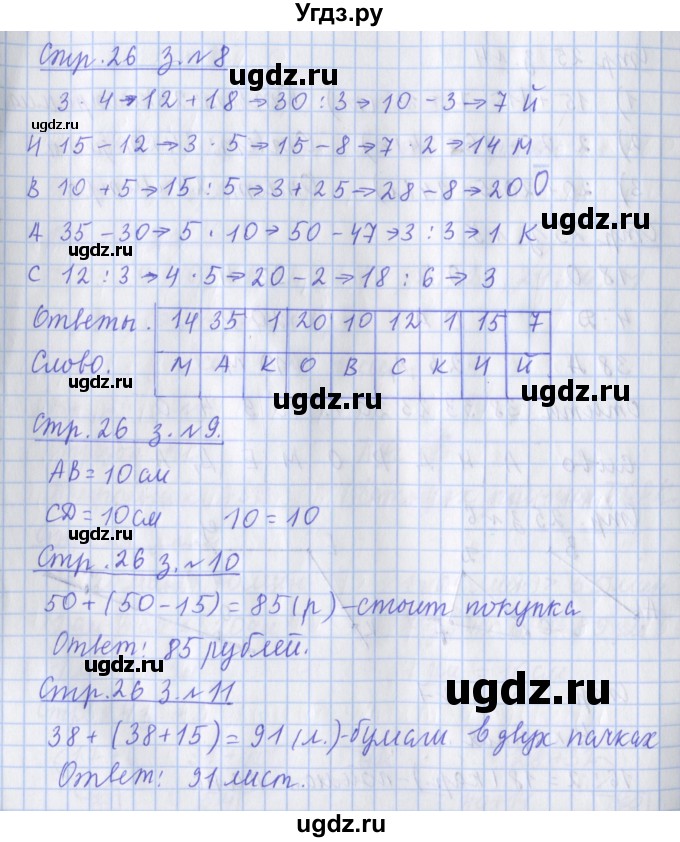 Угдз.ру
Стр. 26 з. №8
ugdz.ru
3 · 4 → 12 + 18 → 30 : 3 → 10 - 3 → 7 Й
ugdz.ru
И 15 - 12 → 3 · 5 → 15 - 8 → 7 · 2 → 14 М
ugdz.ru
В 10 + 5 → 15 : 5 → 3 + 25 → 28 - 8 → 20 О
ugdz.ru
А 35 - 30 → 5 · 10 → 50 - 47 → 3 : 3 → 1 К
ugdz.ru
С 12 : 3 → 4 · 5 → 20 - 2 → 18 : 6 → 3
Ответы. 14 35 1 20 10 12 1 15 7
Слово. М А К О В С К И Й
ugdz.ru
ugdz.ru
Стр. 26 з. №9.
АВ = 10 см
CD = 10 см 10 = 10
ugdz.ru
ugdz.ru
Стр. 26 з. №10
50 + (50 - 15) = 85 (р) - стоит покупка
Ответ: 85 рублей.
ugdz.ru
Стр. 26 з. №11
ugdz.ru
38 + (38 + 15) = 91 (л.) - бумаги в двух пачках
Ответ: 91 лист.
ugdz.ru
ugdz.ru
ugdz.ru